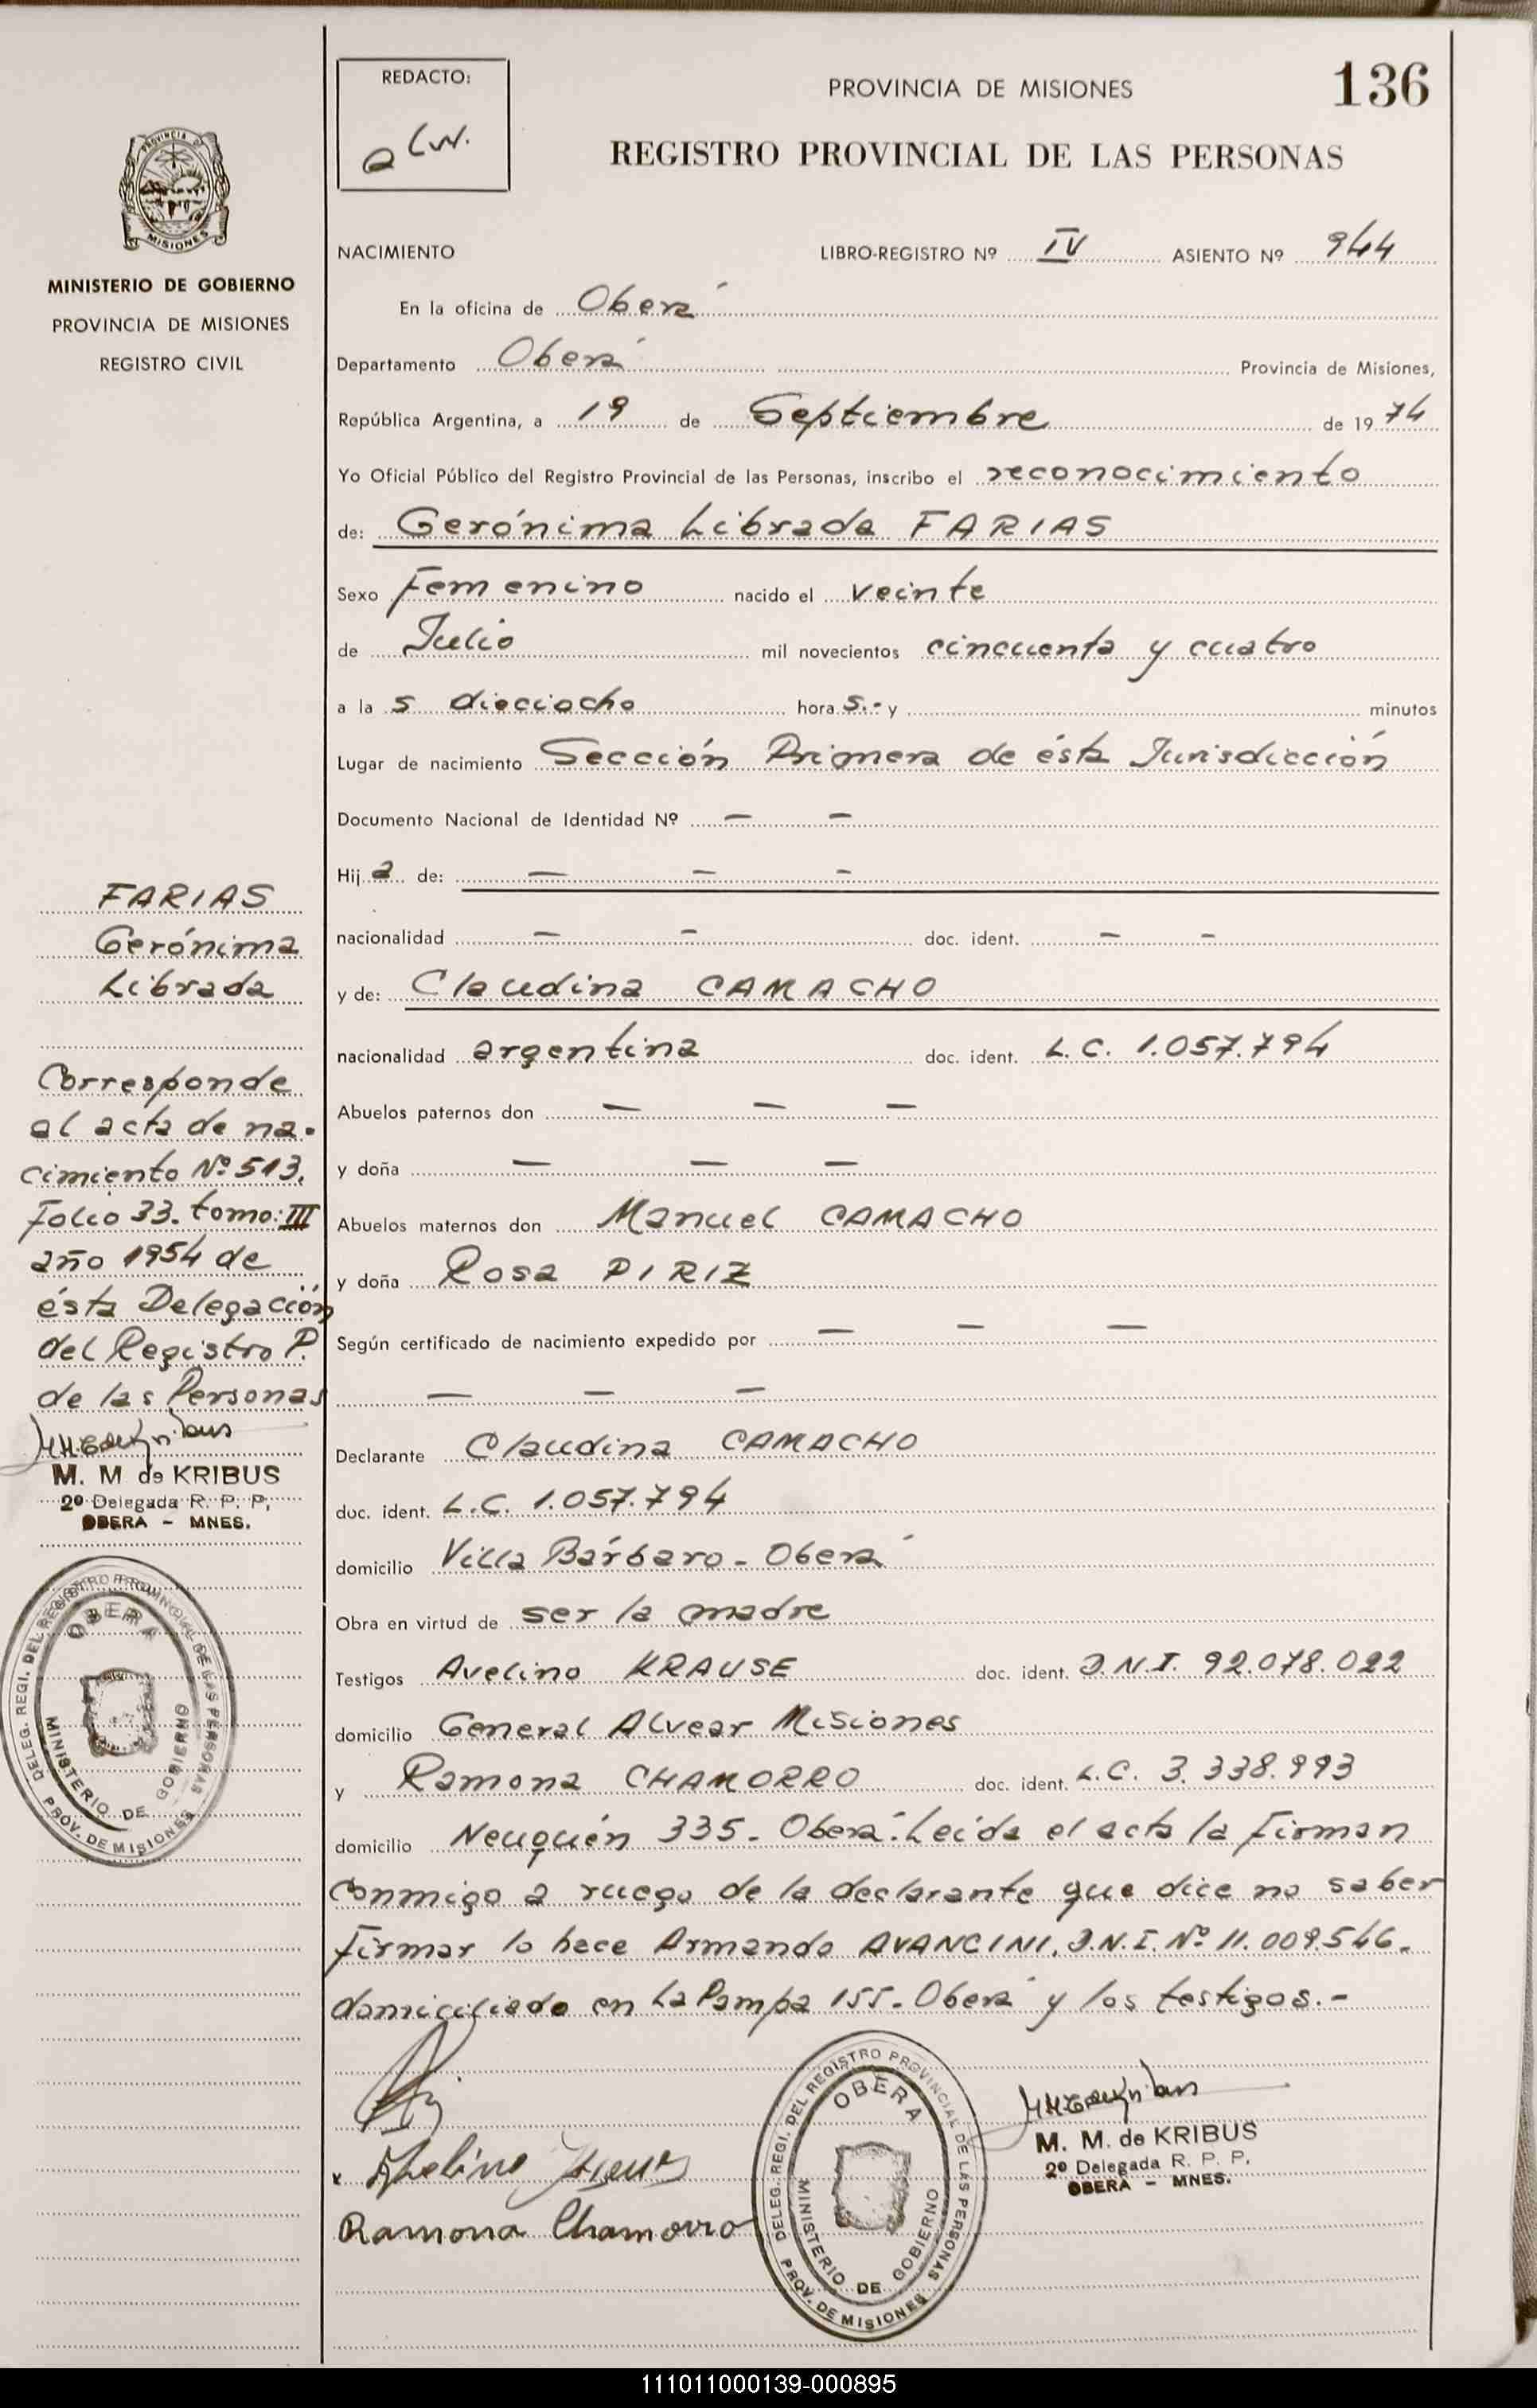 136
REDACTO:
PROVINCIA DE MISIONES
REGISTRO PROVINCIAL DE LAS PERSONAS
PROVINCIA
MISIONES
MINISTERIO DE GOBIERNO
PROVINCIA DE MISIONES
REGISTRO CIVIL
NACIMIENTO LIBRO-REGISTRO Nº IV ASIENTO Nº 944
En la oficina de Oberá
Departamento Oberá Provincia de Misiones,
República Argentina, a 19 de Septiembre de 1974
Yo Oficial Público del Registro Provincial de las Personas, inscribo el reconocimiento
de: Gerónima Librada FARIAS
Sexo Femenino nacido el veinte
de Julio mil novecientos cincuenta y cuatro
a la s dieciocho hora s.- y minutos
Lugar de nacimiento Sección Primera de ésta Jurisdicción
Documento Nacional de Identidad Nº — —
Hij a de: — — —
nacionalidad — — doc. ident. — —
y de: Claudina CAMACHO
nacionalidad argentina doc. ident. L.C. 1.057.794
Abuelos paternos don — — —
y doña — — —
Abuelos maternos don Manuel CAMACHO
y doña Rosa PIRIZ
Según certificado de nacimiento expedido por — — —
— — —
Declarante Claudina CAMACHO
doc. ident. L.C. 1.057.794
domicilio Villa Bárbaro - Oberá
Obra en virtud de ser la madre
Testigos Avelino KRAUSE doc. ident. D.N.I. 92.078.022
domicilio General Alvear Misiones
y Ramona CHAMORRO doc. ident. L.C. 3.338.993
domicilio Neuquén 335. Oberá. Leída el acta la firman
conmigo a ruego de la declarante que dice no saber
firmar lo hace Armando AVANCINI, D.N.I. Nº 11.009.546.
domiciliado en La Pampa 155. Oberá y los testigos.-
Ramona Chamorro
M. M. de KRIBUS
2º Delegada R. P. P.
OBERA - MNES.
DELEG. REGI. DEL REGISTRO PROVINCIAL DE LAS PERSONAS
OBERA
MINISTERIO DE GOBIERNO
PROV. DE MISIONES
FARIAS
Gerónima
Librada
Corresponde
al acta de na-
cimiento Nº 513.
Folio 33. tomo: III
año 1954 de
ésta Delegación
del Registro P.
de las Personas
M. M de KRIBUS
2º Delegada R. P. P.
OBERA - MNES.
DELEG. REGI. DEL REGISTRO PROVINCIAL DE LAS PERSONAS
OBERA
MINISTERIO DE GOBIERNO
PROV. DE MISIONES
111011000139-000895